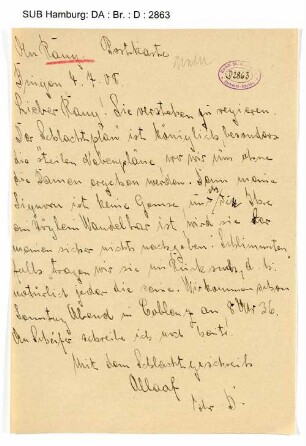 SUB Hamburg: DA : Br. : D : 2863
An Kanz. Postkarte
D2863
Bingen 4.7.08
Lieber Kanz! Sie verstehen zu regieren.
Der Schlachtplan ist königlich besonders
die steilen Nebenpläne wo wir uns ohne
die Damen ergehen werden. Denn meine
Signora ist keine Gemse und da Ihre
ein Vöglein Wandelbar ist wird sie der
meinen sicher nichts nachgeben. Schlimmsten
falls tragen wir sie im Rucksack, d. h.
natürlich jeder die seine. Wir kommen schon
Sonntag Abend in Coblenz an 8 Uhr 36.
An Schäfer schreibe ich noch heute.
Mit dem Schlachtgeschrei
Allaaf
Ihr D.